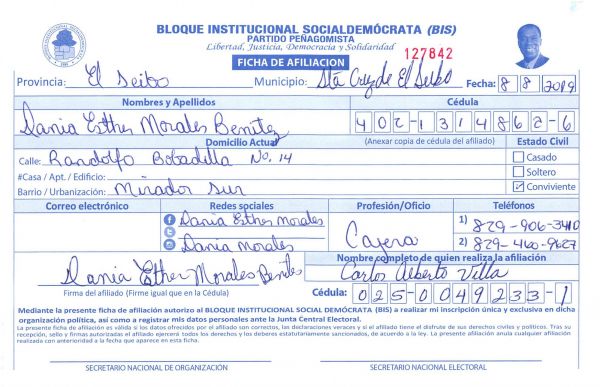 BLOQUE INSTITUCIONAL SOCIALDEMÓCRATA (BIS)
PARTIDO PEÑAGOMISTA
Libertad, Justicia, Democracia y Solidaridad
127842
FICHA DE AFILIACION
Provincia: El Seibo Municipio: Sta Cruz de El Seibo Fecha: 8 8 2019
Nombres y Apellidos Cédula
Dania Esther Morales Benitez 402-1314862-6
Domicilio Actual (Anexar copia de cédula del afiliado) Estado Civil
Calle: Randolfo Bobadilla No. 14 Casado
#Casa / Apt. / Edificio: Soltero
Barrio / Urbanización: Mirador Sur Conviviente
Correo electrónico Redes sociales Profesión/Oficio Teléfonos
Dania Esther Morales 1) 829-906-3410
Dania Morales Cajera 2) 829-460-9627
Nombre completo de quien realiza la afiliación
Dania Esther Morales Benitez Carlos Alberto Villa
Firma del afiliado (Firme igual que en la Cédula) Cédula: 025-0049233-1
Mediante la presente ficha de afiliación autorizo al BLOQUE INSTITUCIONAL SOCIAL DEMÓCRATA (BIS) a realizar mi inscripción única y exclusiva en dicha
organización política, así como a registrar mis datos personales ante la Junta Central Electoral.
La presente ficha de afiliación es válida si los datos ofrecidos por el afiliado son correctos, las declaraciones veraces y si el afiliado tiene el disfrute de sus derechos civiles y políticos. Tras su
recepción, sello y firmas autorizadas el afiliado ejercerá todos los derechos y los deberes estatutariamente sancionados, de acuerdo a la ley. La presente afiliación anula cualquier afiliación
realizada con anterioridad a la fecha que aparece en esta ficha.
SECRETARIO NACIONAL DE ORGANIZACIÓN SECRETARIO NACIONAL ELECTORAL